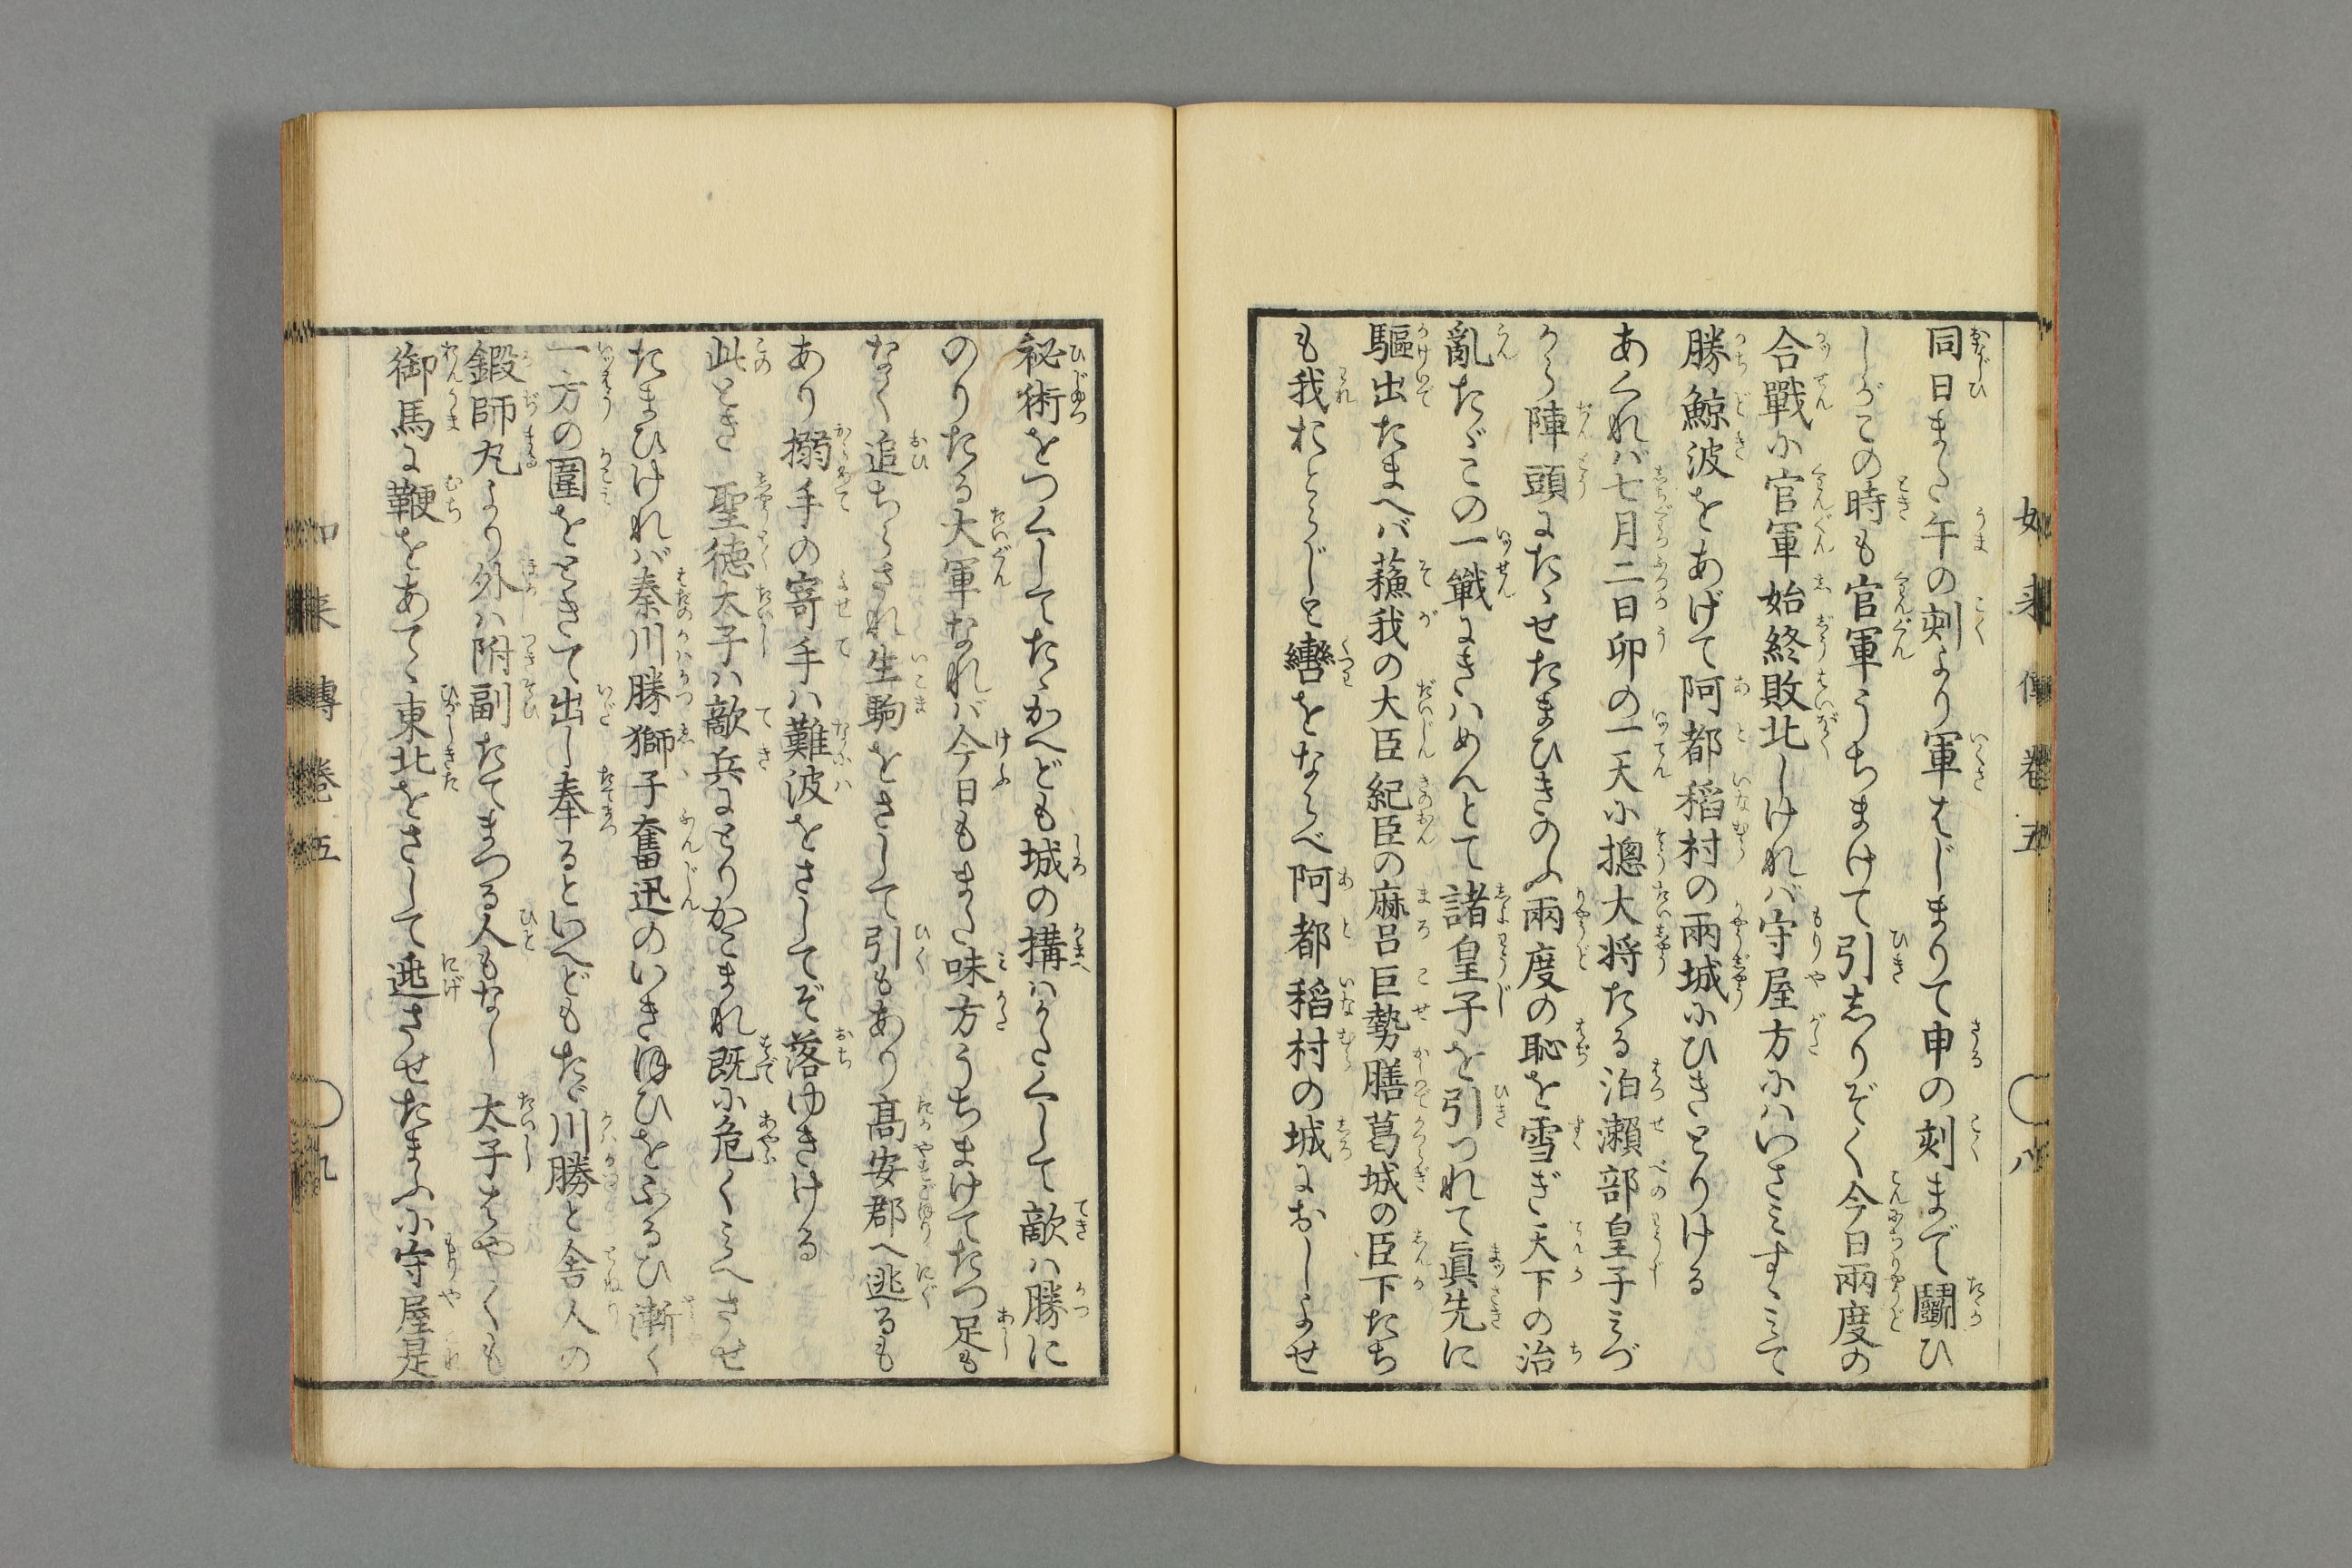 同日また午の刻より軍はじまりて申の刻まで鬪ひ
しがこの時も官軍うちまけて引しりぞく今日兩度の
合戰に官軍始終敗北しけれバ守屋方にハいさみすゝみて
勝鯨波をあげて阿都稻村の兩城にひきとりける
あくれバ七月二日卯の一天に摠大将たる泊瀬部皇子みづ
から陣頭にたゝせたまひきのふ兩度の恥を雪ぎ天下の治
亂たゞこの一戰にきハめんとて諸皇子を引つれて眞先に
驅出たまへバ蘓我の大臣紀臣の麻呂巨勢膳葛城の臣下たち
も我おとらじと轡をならべ阿都稻村の城におしよせ
如来傳卷五
八
秘術をつくしてたゝかへども城の搆ハかたくして敵ハ勝に
のりたる大軍なれバ今日もまた味方うちまけてたつ足も
なく追ちらされ生駒をさして引もあり髙安郡へ逃るも
あり搦手の寄手ハ難波をさしてぞ落ゆきける
此とき 聖徳太子ハ敵兵にとりかこまれ既に危くみへさせ
たまひけれバ秦川勝獅子奮迅のいきほひをふるひ漸く
一方の圍をときて出し奉るといへどもたゞ川勝と舎人の
鍜師丸より外ハ附副たてまつる人もなし 太子はやくも
御馬に鞭をあてゝ東北をさして逃させたまふに守屋是
如来傳卷五
九